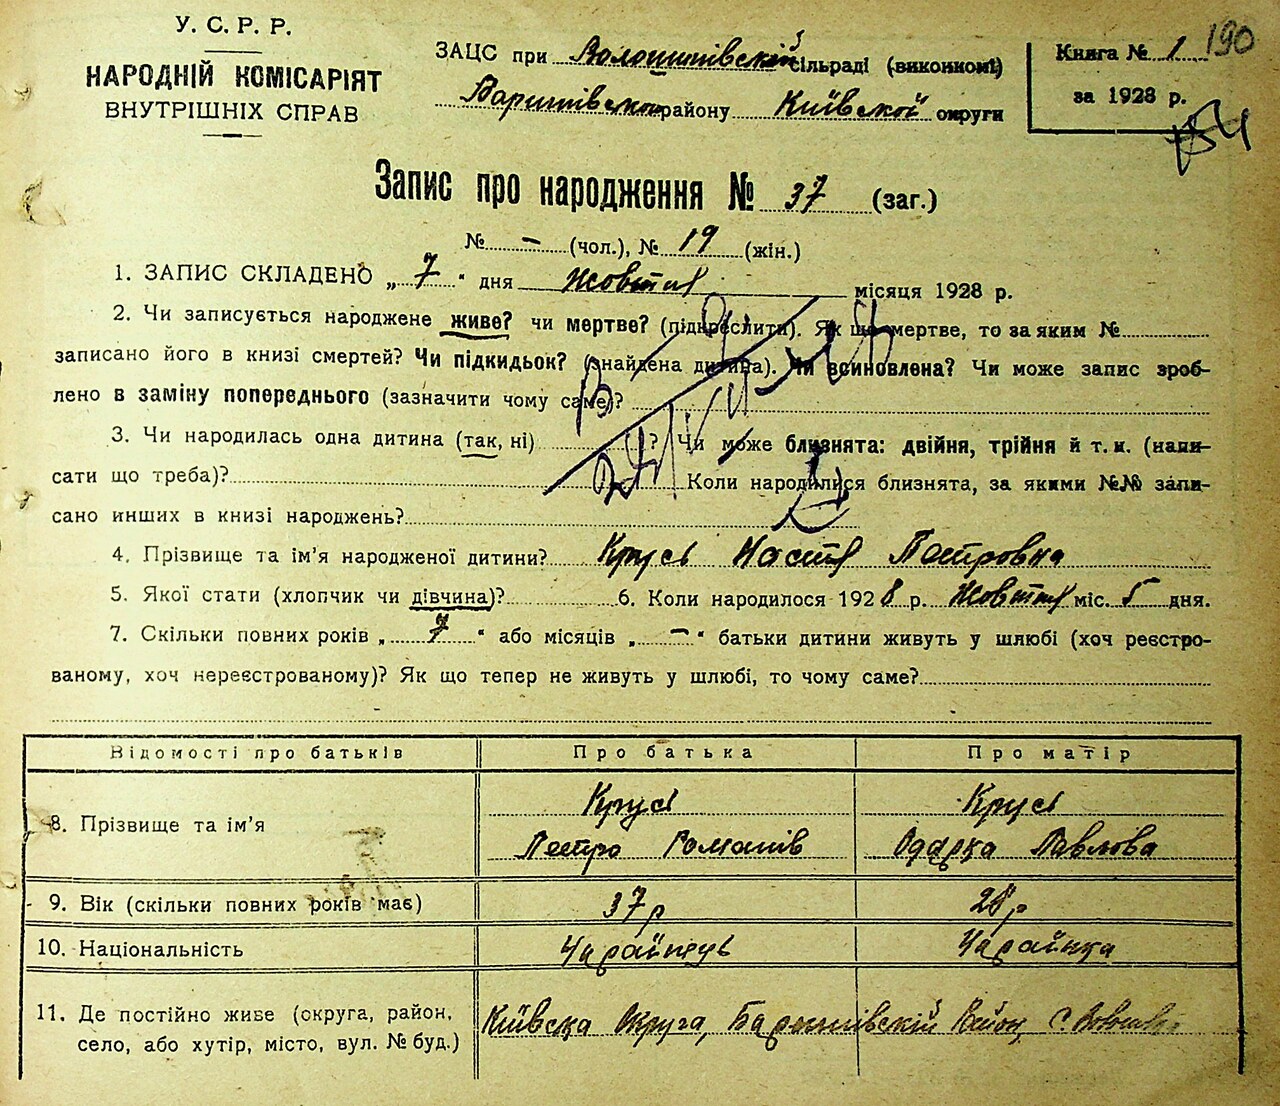 У. С. Р. Р.
НАРОДНІЙ КОМІСАРІЯТ
ВНУТРІШНІХ СПРАВ
ЗАЦС при Волошинівскій сільраді (виконкомі)
Баришівского району Київской округи
Книга № 1 190
за 1928 р.
Запис про народження № 37 (заг.)
№ – (чол.), № 19 (жін.)
1. ЗАПИС СКЛАДЕНО „ 7 " дня Жовтня місяця 1928 р.
2. Чи записується народжене живе? чи мертве? (підкреслити). Як що мертве, то за яким №
записано його в книзі смертей? Чи підкидьок? (знайдена дитина). Чи всиновлена? Чи може запис зроб-
лено в заміну попереднього (зазначити чому саме)?
3. Чи народилась одна дитина (так, ні) ? Чи може близнята: двійня, трійня й т. и. (напи-
сати що треба)? Коли народилися близнята, за якими №№ запи-
сано инших в книзі народжень?
4. Прізвище та ім'я народженої дитини? Крусь Настя Петровна
5. Якої стати (хлопчик чи дівчина)? 6. Коли народилося 1928 р. Жовтня міс. 5 дня.
7. Скільки повних років „ 7 " або місяців „ – " батьки дитини живуть у шлюбі (хоч реєстро-
ваному, хоч нереєстрованому)? Як що тепер не живуть у шлюбі, то чому саме?
Відомості про батьків Про батька Про матір
8. Прізвище та ім'я
Крусь Крусь
Петро Романів Одарка Павлова
9. Вік (скільки повних років має) 37 р 28 р
10. Національність Украйнець Украйнка
11. Де постійно живе (округа, район,
село, або хутір, місто, вул. № буд.)
Київска Округа, Баришівскій Район, с